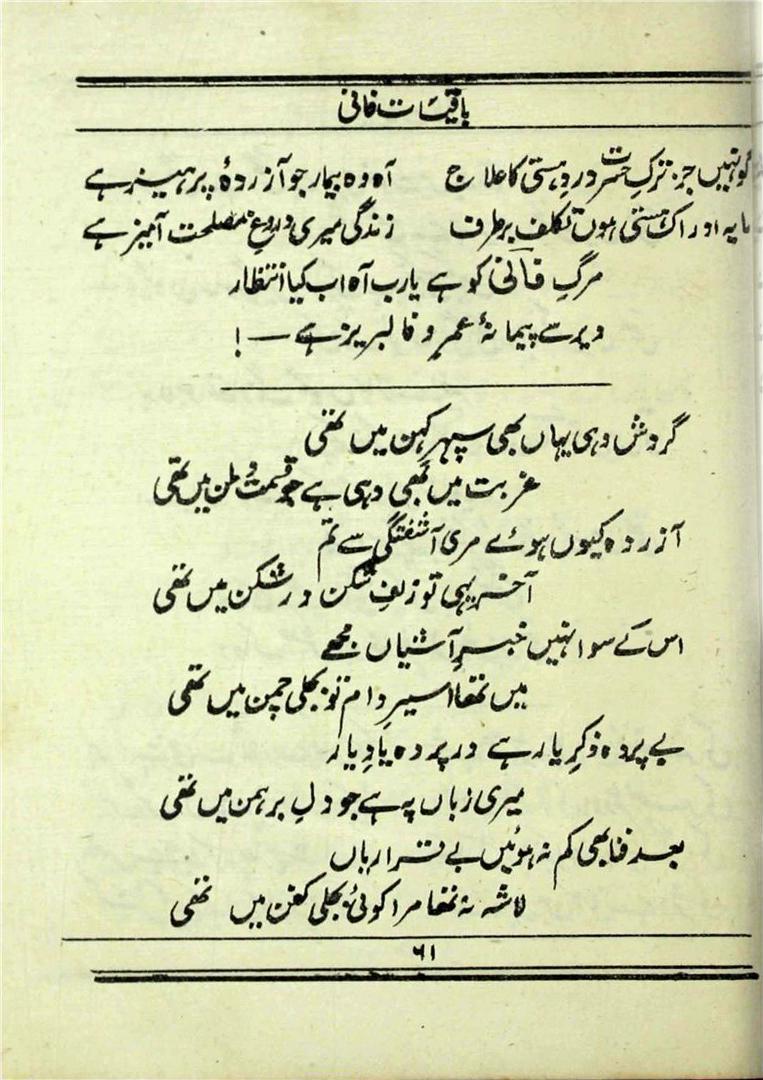 باقیات فانی
گو نہیں جز ترکِ حسرت دردِ ہستی کا علاج آہ وہ بیمار جو آزردۂ پرہیز ہے
مایہ اوراک ہستی ہوں تکلف برطرف زندگی میری دروغِ مصلحت آمیز ہے
مرگِ فانی کو ہے یارب آہ اب کیا انتظار
دیر سے پیمانۂ عمرِ وفا لبریز ہے — !
گردش وہی یہاں بھی سپہرِ کہن میں تھی
غربت میں بھی وہی ہے جو قسمت وطن میں تھی
آزردہ کیوں ہوئے مری آشفتگی سے تم
آخر یہی تو زلفِ شکن در شکن میں تھی
اس کے سوا نہیں خبرِ آشیاں مجھے
میں تھا اسیرِ دام تو بجلی چمن میں تھی
بے پردہ ذکرِ یار ہے در پردہ یادِ یار
میری زباں پہ ہے جو دلِ برہمن میں تھی
بعد فنا بھی کم نہ ہوئیں بے قراریاں
لاشہ نہ تھا مرا کوئی بجلی کفن میں تھی
۶۱